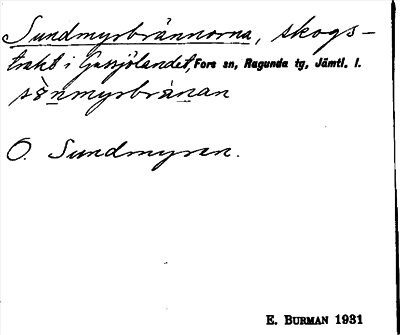 Sundmyrbrännorna, skogs-
trakt i Gassjölandet, Fors sn, Ragunda tg, Jämtl. l.
sὃnmyrbrànan
O. Sundmyren.
E. BURMAN 1931